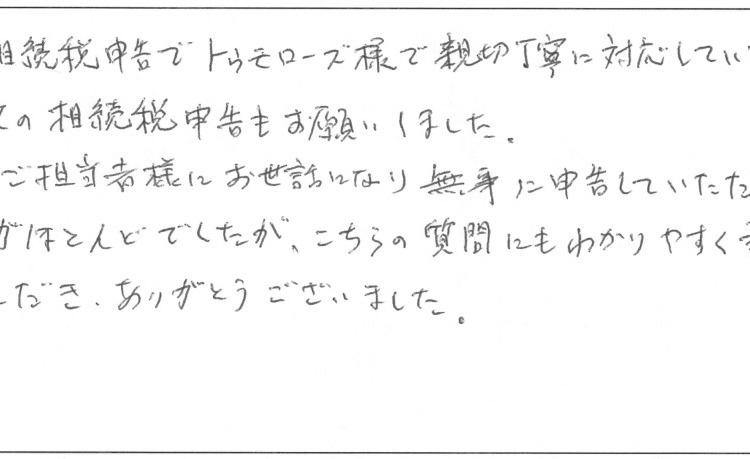 相続税申告でトゥモローズ様で親切丁寧に対応してい
の相続税申告もお願いしました。
ご担当者様にお世話になり無事に申告していただ
がほとんどでしたが、こちらの質問にもわかりやすく
ただき、ありがとうございました。